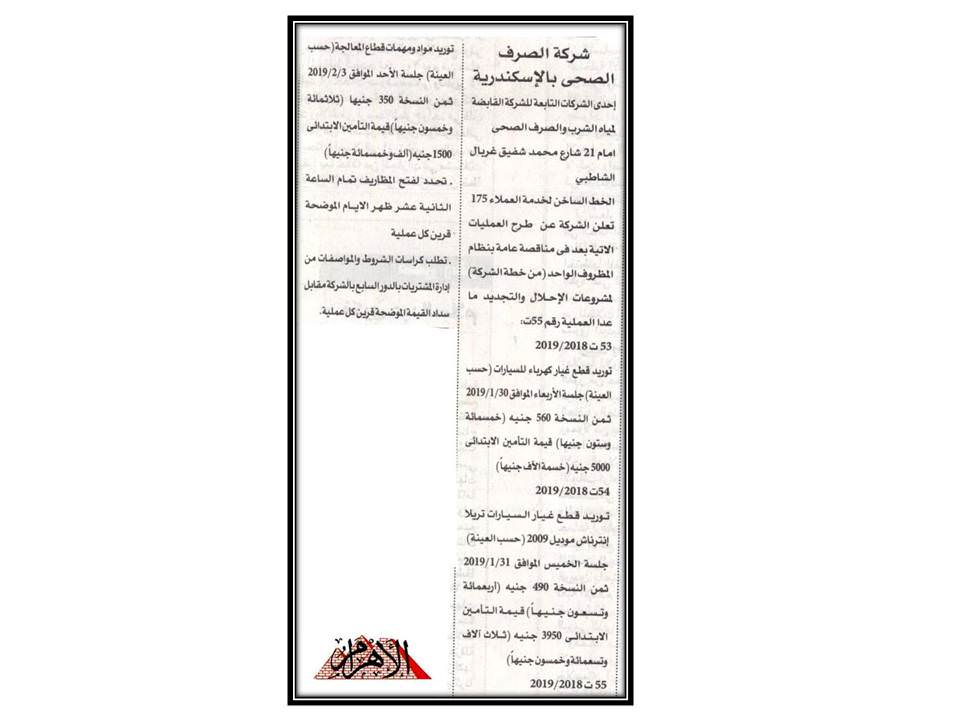 شركة الصرف
الصحى بالإسكندرية
إحدى الشركات التابعة للشركة القابضة
لمياه الشرب والصرف الصحى
امام 21 شارع محمد شفيق غربال
الشاطبي
الخط الساخن لخدمة العملاء 175
تعلن الشركة عن طرح العمليات
الاتية بعد فى مناقصة عامة بنظام
المظروف الواحد (من خطة الشركة)
لمشروعات الإحلال والتجديد ما
عدا العملية رقم 55ت:
53 ت 2019/2018
توريد قطع غيار كهرباء للسيارات (حسب
العينة) جلسة الأربعاء الموافق 2019/1/30
ثمن النسخة 560 جنيه (خمسمائة
وستون جنيها) قيمة التأمين الابتدائى
5000 جنيه (خسمة الاف جنيهاً)
54ت 2019/2018
توريد قطع غيار السيارات تريلا
إنترناش موديل 2009 (حسب العينة)
جلسة الخميس الموافق 2019/1/31
ثمن النسخة 490 جنيه (أربعمائة
وتسعون جنيهاً) قيمة التأمين
الابتدائى 3950 جنيه (ثلاث آلاف
وتسعمائة وخمسون جنيهاً)
55 ت 2019/2018
توريد مواد ومهمات قطاع المعالجة (حسب
العينة) جلسة الأحد الموافق 2019/2/3
ثمن النسخة 350 جنيها (ثلاثمائة
وخمسون جنيهاً) قيمة التأمين الابتدائى
1500 جنيه (ألف وخمسمائة جنيهاً)
. تحدد لفتح المظاريف تمام الساعة
الثانية عشر ظهر الايام الموضحة
قرين كل عملية
. تطلب كراسات الشروط والمواصفات من
إدارة المشتريات بالدور السابع بالشركة مقابل
سداد القيمة الموضحة قرين كل عملية.
الأهرام